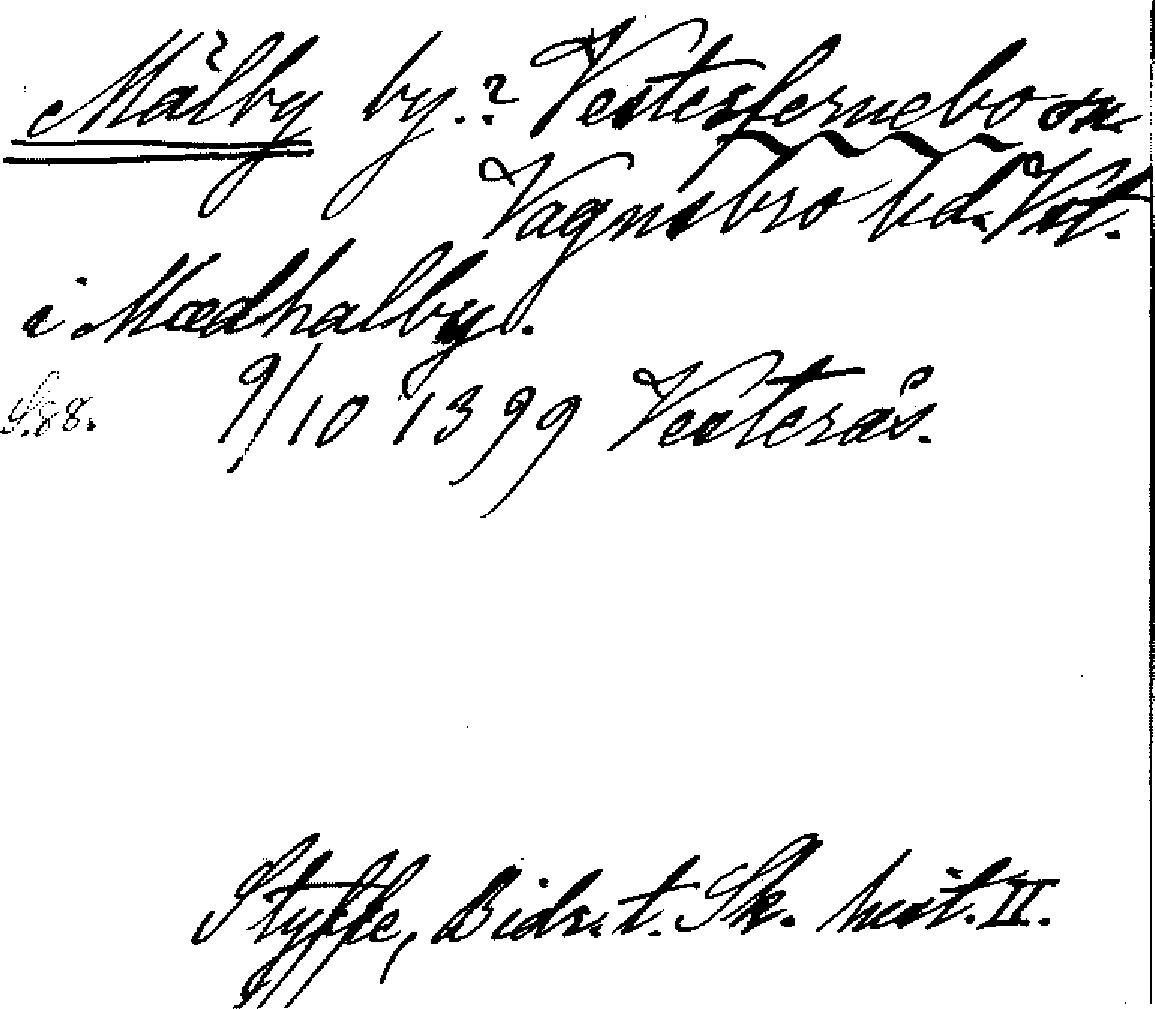 Målby by.? Vesterfernebo sn.
Vagnsbro hd. Vst.
i Mædhalby.
S. 88. 9/10 1399 Vesterås.
Styffe, Bidr. t. Sk. hist. II.